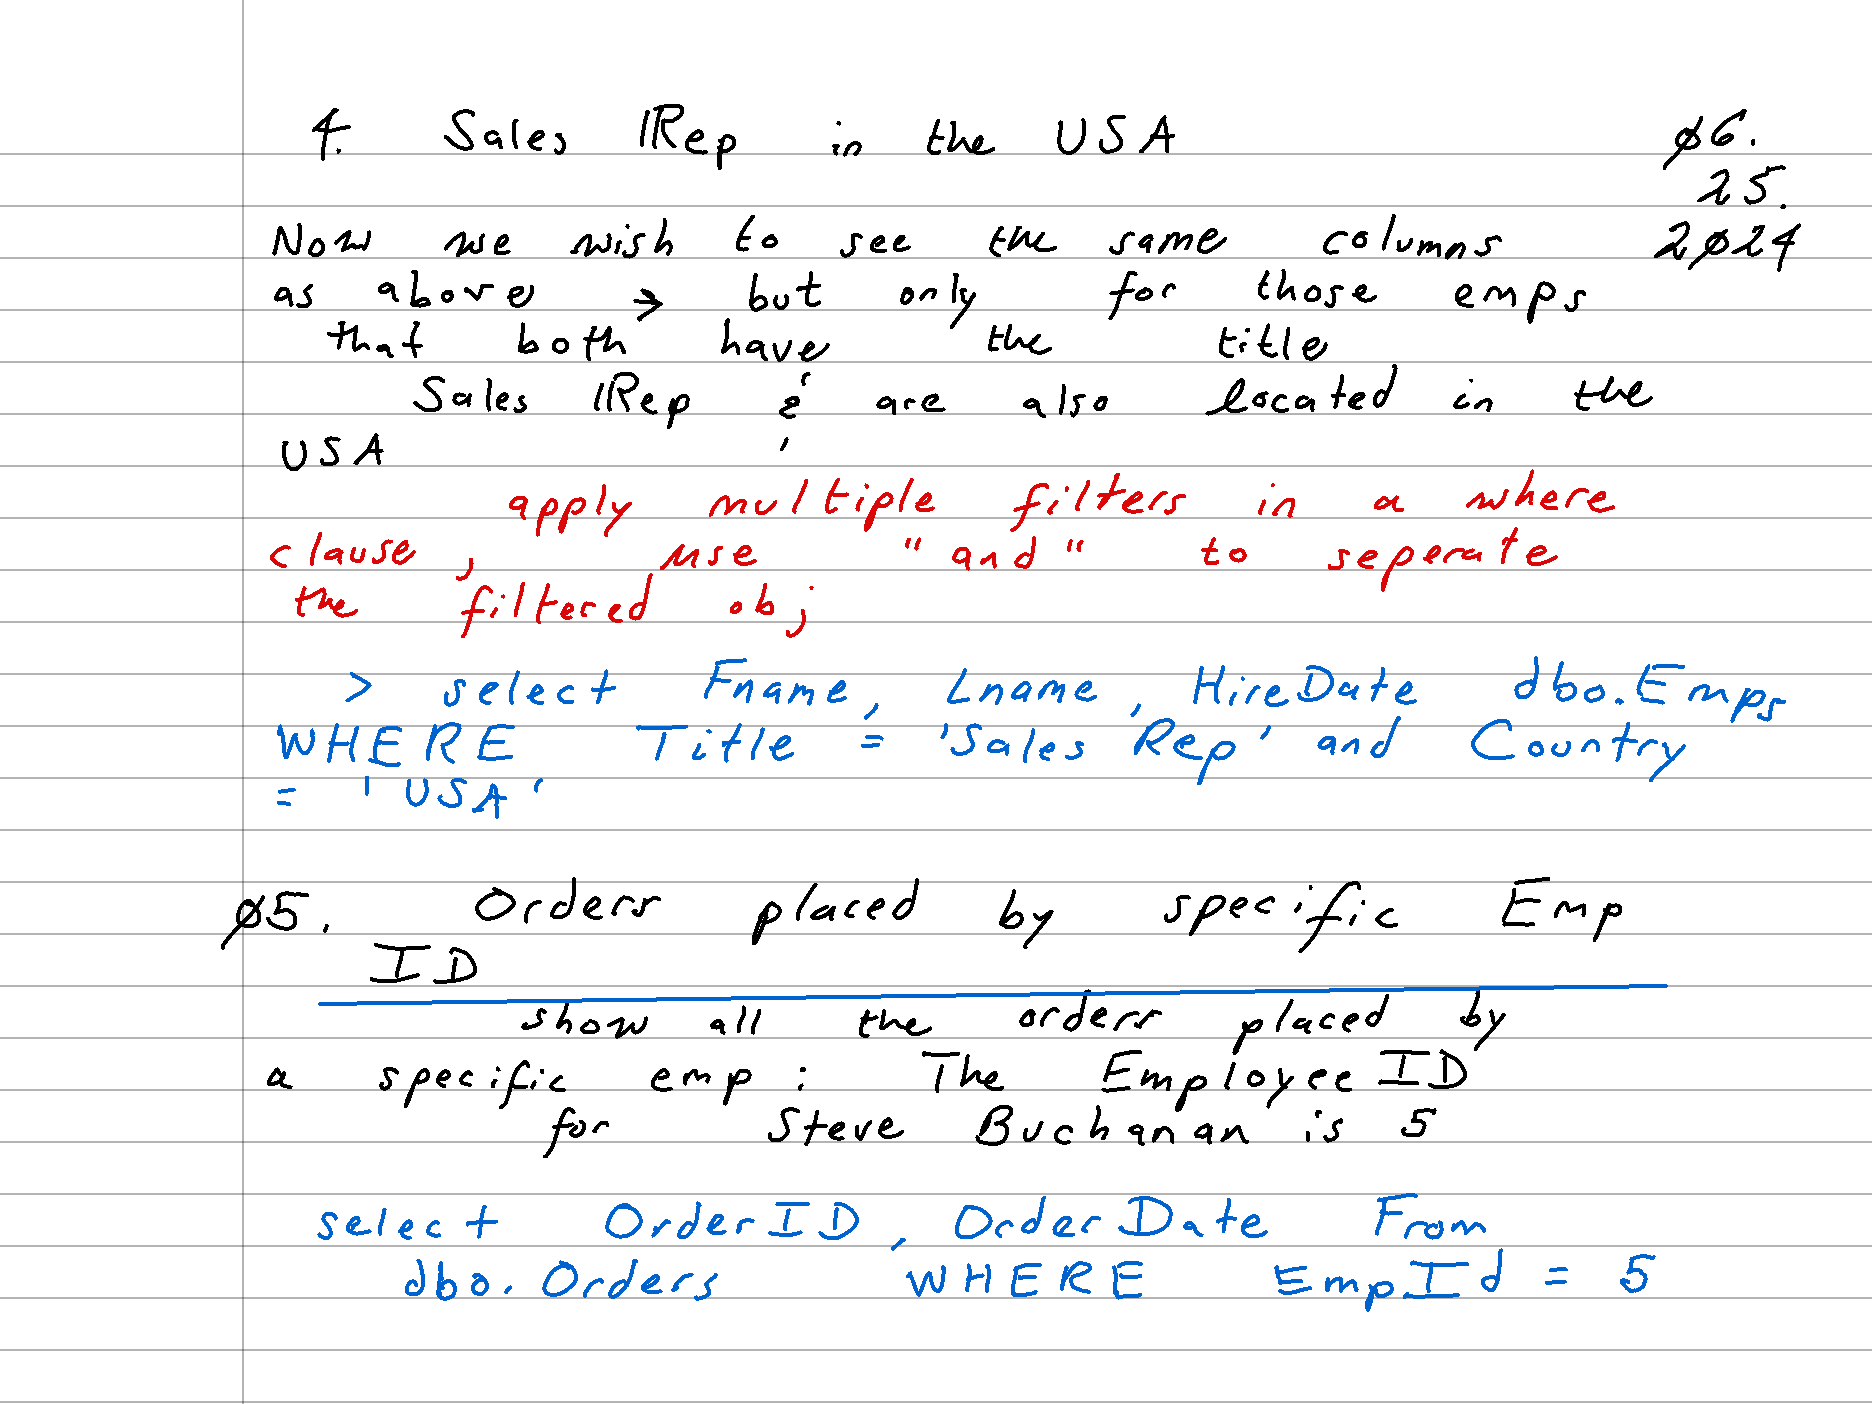 4. Sales Rep in the USA
Ø6.
25.
2Ø24
Now we wish to see the same columns
as above → but only for those emps
that both have the title
Sales Rep & are also located in the
USA
apply multiple filters in a where
clause, use "and" to seperate
the filtered obj
> select Fname, Lname, HireDate dbo.Emps
WHERE Title = 'Sales Rep' and Country
= 'USA'
Ø5. Orders placed by specific Emp
ID
show all the orders placed by
a specific emp: The EmployeeID
for Steve Buchanan is 5
select OrderID, OrderDate From
dbo.Orders WHERE EmpId = 5